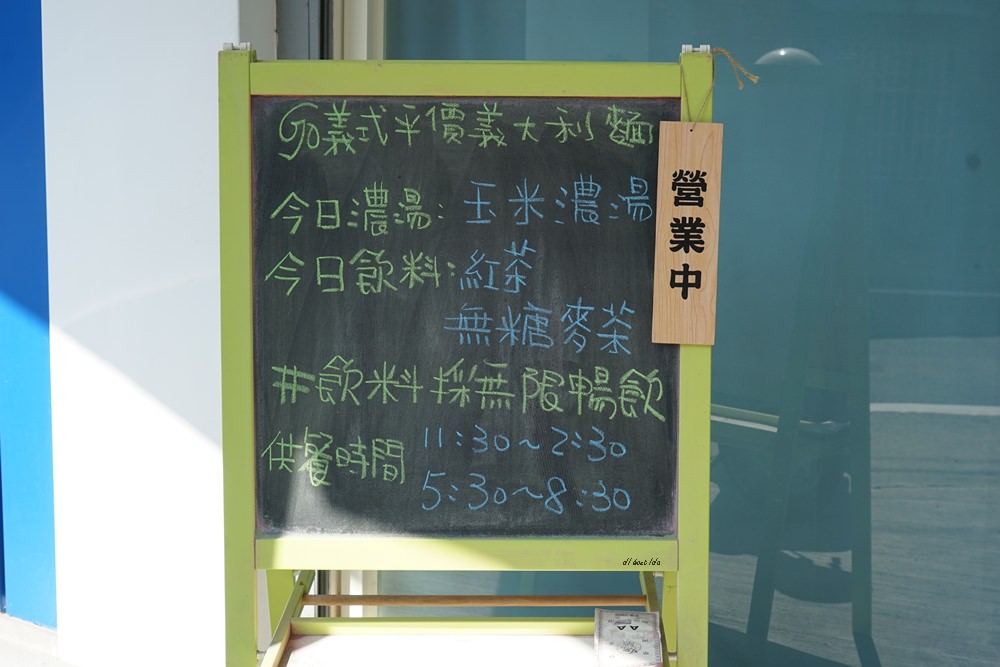 Go義式平價義大利麵
今日濃湯: 玉米濃湯
今日飲料:紅茶
無糖麥茶
#飲料採無限暢飲
供餐時間 11:30~2:30
5:30~8:30
營業中